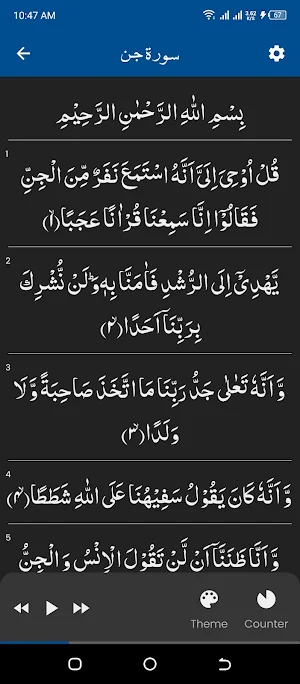 10:47 AM
3.52 K/s
67
سورة جن
بِسْمِ اللّٰهِ الرَّحْمٰنِ الرَّحِيْمِ
1
قُلْ اُوْحِىَ اِلَىَّ اَنَّهُ اسْتَمَعَ نَفَرٌ مِّنَ الْجِنِّ
فَقَالُوْۤا اِنَّا سَمِعْنَا قُرْاٰنًا عَجَبًا(۱)
2
يَّهْدِىْۤ اِلَى الرُّشْدِ فَاٰمَنَّا بِهٖ وَلَنْ نُّشْرِكَ
بِرَبِّنَاۤ اَحَدًا(۲)
3
وَّاَنَّهٗ تَعٰلٰى جَدُّ رَبِّنَا مَا اتَّخَذَ صَاحِبَةً وَّلَا
وَلَدًا(۳)
4
وَّاَنَّهٗ كَانَ يَقُوْلُ سَفِيْهُنَا عَلَى اللّٰهِ شَطَطًا(۴)
5
وَّاَنَّا ظَنَنَّاۤ اَنْ لَّنْ تَقُوْلَ الْاِنْسُ وَالْجِنُّ
Theme
Counter